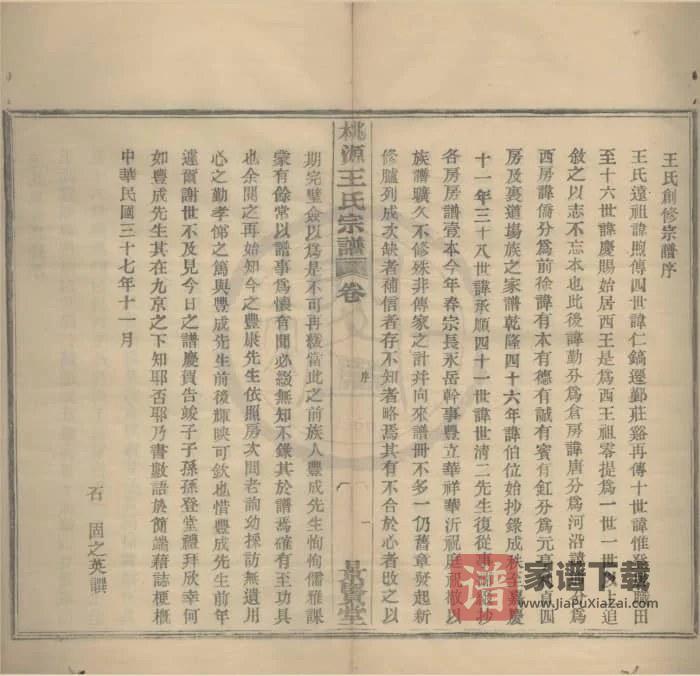 王氏創修宗譜序
王氏遠祖諱煦傳四世諱仁鎬遷鄞莊谿再傳十世諱惟 職田
至十六世諱慶賜始居西王是爲西王祖零提爲一世一世以上追
敘之以志不忘本也此後諱勤分爲倉房諱唐分爲河沿諱 分爲
西房諱僑分爲前徐諱有木有德有誠有賓有釭分爲元亨 貞四
房及裏道塲族之家譜乾隆四十六年諱伯位始抄錄成秩至嘉慶
十一年三十八世諱承順四十一世諱世清二先生復從事 抄
各房房譜壹本今年春宗長永岳幹事豐立華祥華沂祝庭祝徼以
族譜曠久不修殊非傳家之計幷向來譜冊不多一仍舊章發起新
修臚列成次缺者補信者存不知者略焉其有不合於心者改之以
桃源王氏宗譜
卷
序
一
景 堂
期完璧僉以爲是不可再緩當此之前族人豐成先生恂恂儒雅課
蒙有餘常以譜事爲懷有聞必綴無知不錄其於譜焉確有至功具
也余聞之再始知今之豐康先生依照房次問老詢幼採訪無遺用
心之勤孝悌之篤與豐成先生前後輝映可欽也惜豐成先生前年
遽爾謝世不及見今日之譜慶賀告竣子子孫孫登堂禮拜欣幸何
如豐成先生其在九京之下知耶否耶乃書數語於簡端藉誌梗槪
中華民國三十七年十一月
石固之英譔
譜
家谱下载
www.JiaPuXiaZai.com